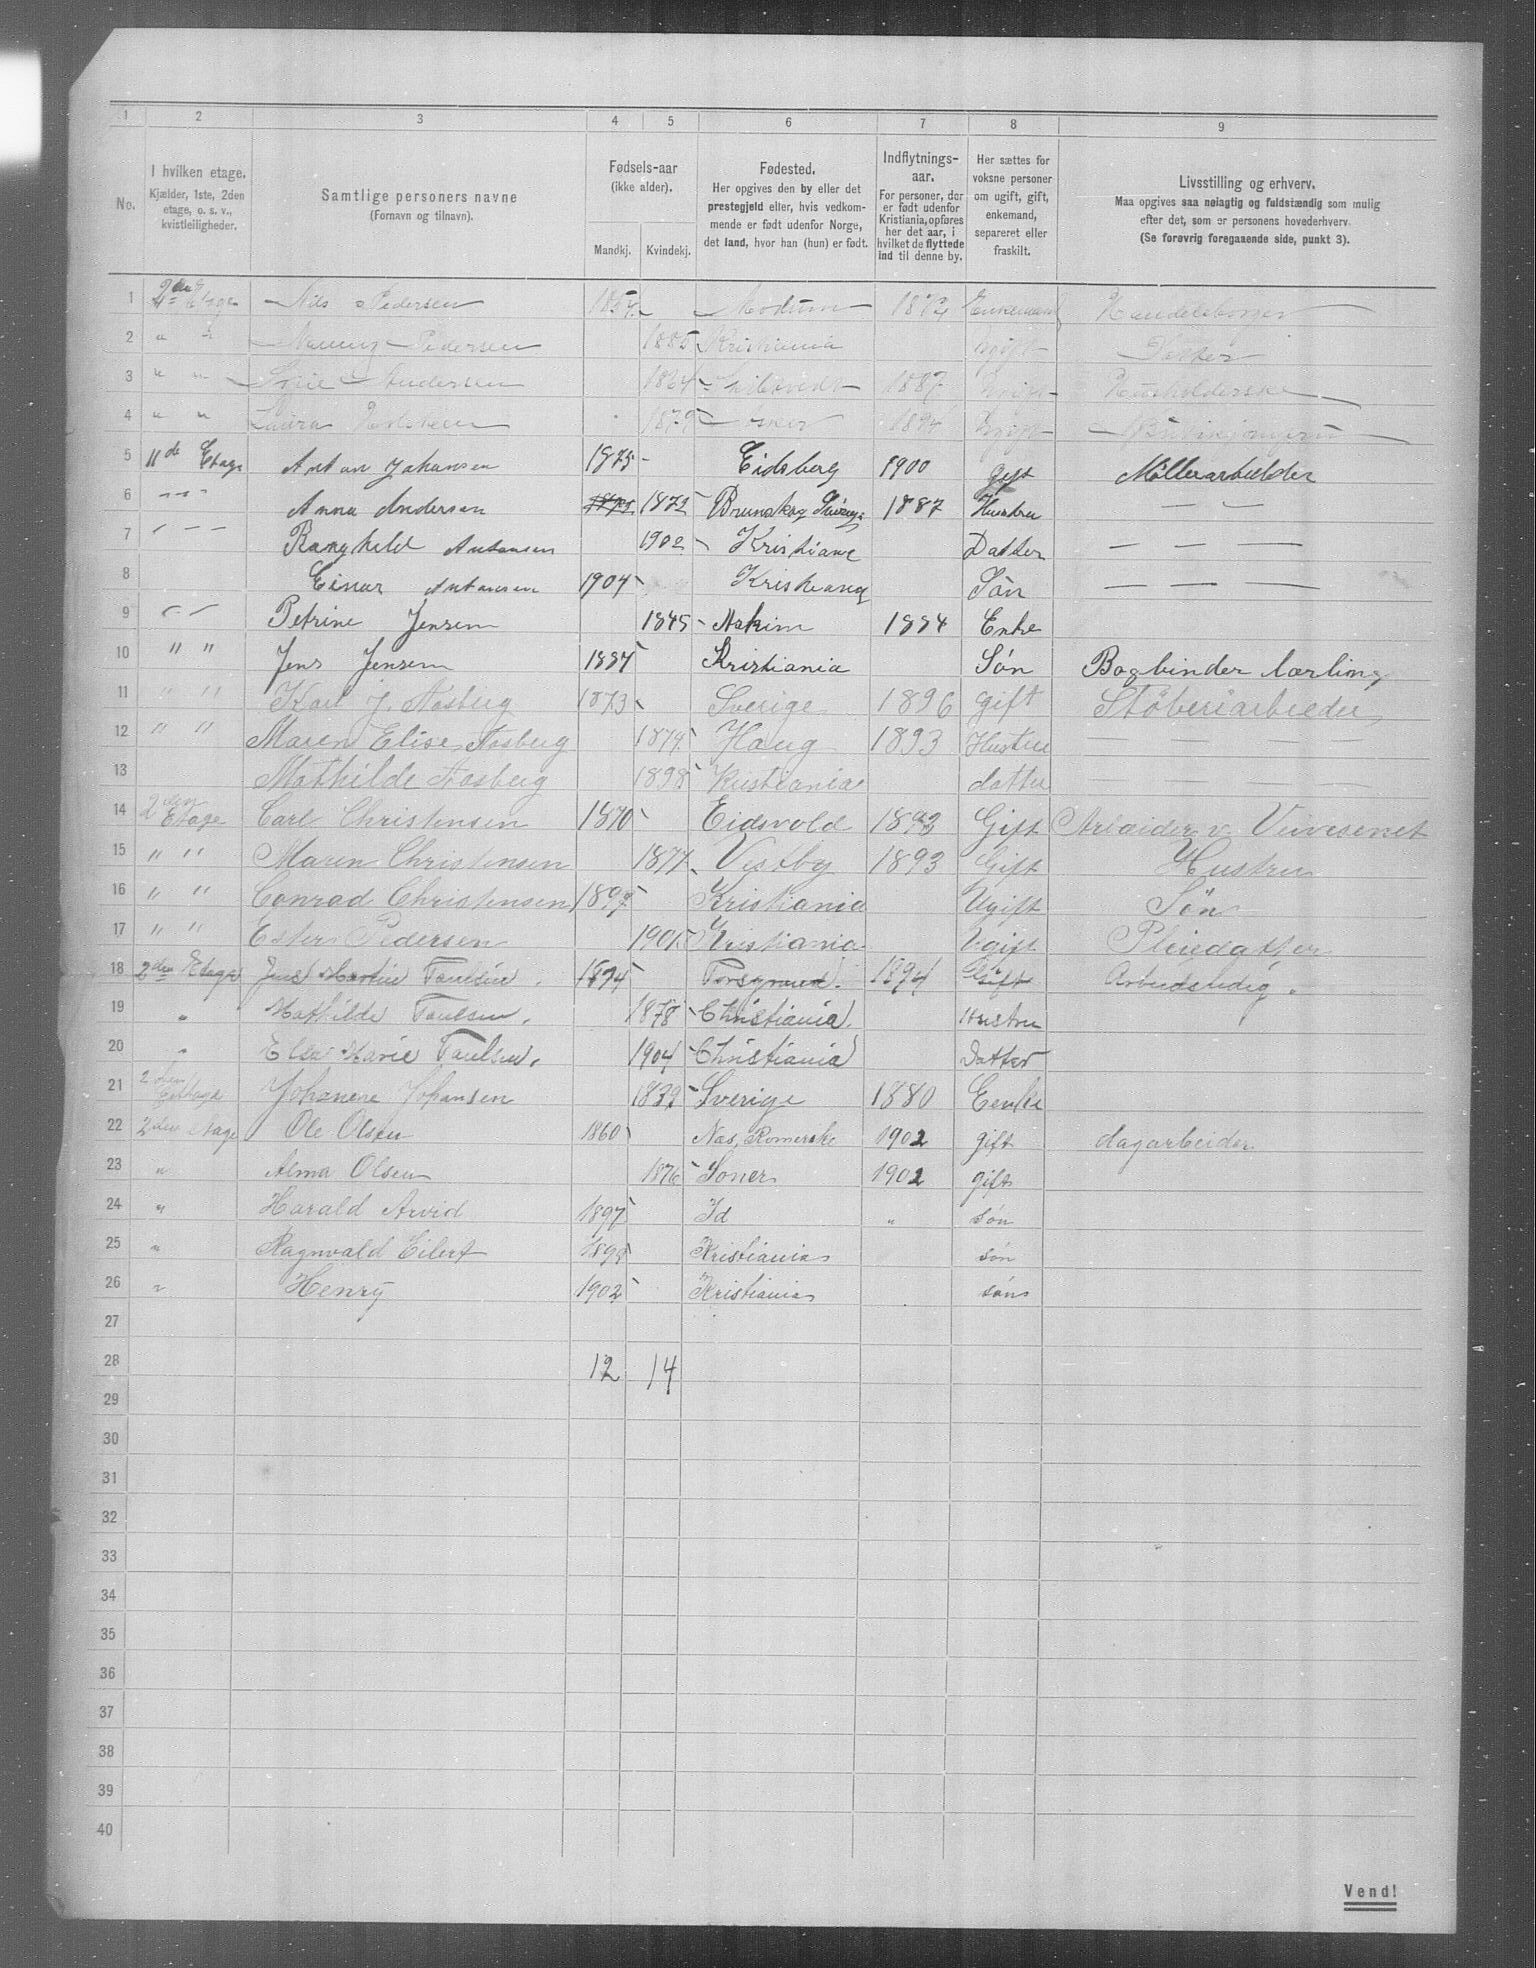 1 2 3 4 5 6 7 8 9
No.
I hvilken etage.
Kjælder, 1ste, 2den
etage, o. s. v.,
kvistleiligheder.
Samtlige personers navne
(Fornavn og tilnavn).
Fødsels-aar
(ikke alder).
Mandkj. Kvindekj.
Fødested.
Her opgives den by eller det
prestegjeld eller, hvis vedkom-
mende er født udenfor Norge,
det land, hvor han (hun) er født.
Indflytnings-
aar.
For personer, der
er født udenfor
Kristiania, opføres
her det aar, i
hvilket de flyttede
ind til denne by.
Her sættes for
voksne personer
om ugift, gift,
enkemand,
separeret eller
fraskilt.
Livsstilling og erhverv.
Maa opgives saa nøiagtig og fuldstændig som mulig
efter det, som er personens hovederhverv.
(Se forøvrig foregaaende side, punkt 3).
1 2den Etage Nils Pedersen 1854 Modum 1872 Enkemand Handelsborger
2 " " Pedersen 1885 Kristiania Ugift Datter
3 " " Andersen 1864 1887 Ugift Husholderske
4 " " Laura Holsteen 1879 Asker 1894 Ugift
5 11de Etage Anton Johansen 1875 Eidsberg 1900 gift Möllerarbeider
6 " " " Anna Andersen 1872 Brunskog 1887 Hustru — —
7 " — — Rangheld Antonsen 1902 Kristiania Datter — — —
8 Einar Antonsen 1904 Kristiania Sön — — —
9 " " Petrine Jensen 1845 1884 Enke
10 " " Jens Jensen 1887 Kristiania Søn Bogbinder lærling
11 " " Karl J. Aasberg 1873 Sverige 1896 gift Stöberiarbeider
12 " " Maren Elise Aasberg 1874 Haug 1893 Hustru — — — —
13 Mathilde Aasberg 1898 Kristiania datter — — — —
14 2den Etage Carl Christensen 1870 Eidsvold 1893 Gift Arbeider v. Veivesenet
15 " " Maren Christensen 1871 Vestby 1893 Gift Hustru
16 " " Conrad Christensen 1897 Kristiania Ugift Sön
17 " " Ester Pedersen 1901 Kristiania Ugift Pleiedatter
18 2den Etage Jens Martin Paulsen 1874 Porsgrund. 1894 Gift Arbeidsledig.
19 " Mathilde Paulsen. 1878 Christiania. Hustru
20 " Elsa Marie Paulsen. 1904 Christiania Datter
21 2den Etage Johanne Johansen 1832 Sverige 1880 Eenke
22 2den Etage Ole Olsen 1860 Nas, Romerike 1902 gift dagarbeider
23 " Alma Olsen 1876 Soner 1902 gift
24 " Harald Arvid 1897 Id " søn
25 " Ragnvald Eilert 1898 Kristiania søn
26 " Henry 1902 Kristiania søn
27
28 12 14
29
30
31
32
33
34
35
36
37
38
39
40
Vend!